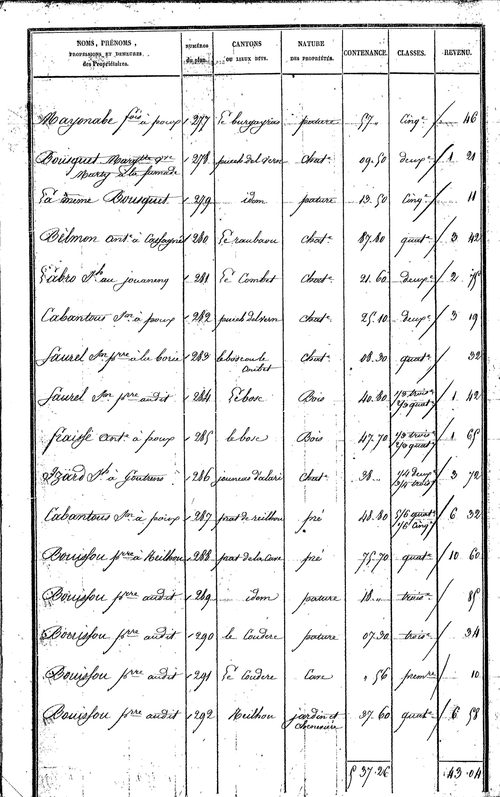 NOMS, PRÉNOMS, PROFESSIONS ET DEMEURES des Propriétaires. NUMÉROS du plan. CANTONS OU LIEUX DITS. NATURE DES PROPRIÉTÉS. CONTENANCE. CLASSES. REVENU.
Mazenabe fois à poux 1277 Le burgayras pature 57 " cinq.e 46
Bousquet Marg.tte v.ve 1278 puech del vern chat.e 09.50 deux.e 1 21
Marty à la
La même Bousquet 1279 idem pature 13.50 cinq.e 11
Bélmon ant.e à Cassagne 1280 Le raubaou chat.e 87.80 quat.e 3 42
Fabro au jouaneng 1281 Le Combet chat.e 21.60 deux.e 2 75
Cabantous à poux 1282 puech del vern chat.e 25.10 deux.e 3 19
Laurel p.rre à la borie 1283 le bosc ou le combet chat.e 08.30 quat.e 32
Laurel p.rre audit 1284 Le bosc Bois 40.80 1/3 trois.e 2/3 quat.e 1 42
fraisse ant.e à poux 1285 le bosc Bois 47.70 1/3 trois.e 2/3 quat.e 1 65
Izard à Goutrens 1286 chat.e 38 " 1/4 deux.e 3/4 trois.e 3 72
Cabantous à poux 1287 prat de reilhou pré 48.80 5/6 quat.e 1/6 cinq.e 6 32
Bouissou p.rre à Reilhou 1288 prat de la Cave pré 75.70 quat.e 10 60
Bouissou p.rre audit 1289 idem pature 18 " trois.e 85
Bouissou p.rre audit 1290 le Coudere pature 07.30 trois.e 34
Bouissou p.rre audit 1291 Le Coudere Cave " 56 prem.re 10
Bouissou p.rre audit 1292 Reilhou jardin et cheneviere 37.60 quat.e 6 58
5 37.26 43.04